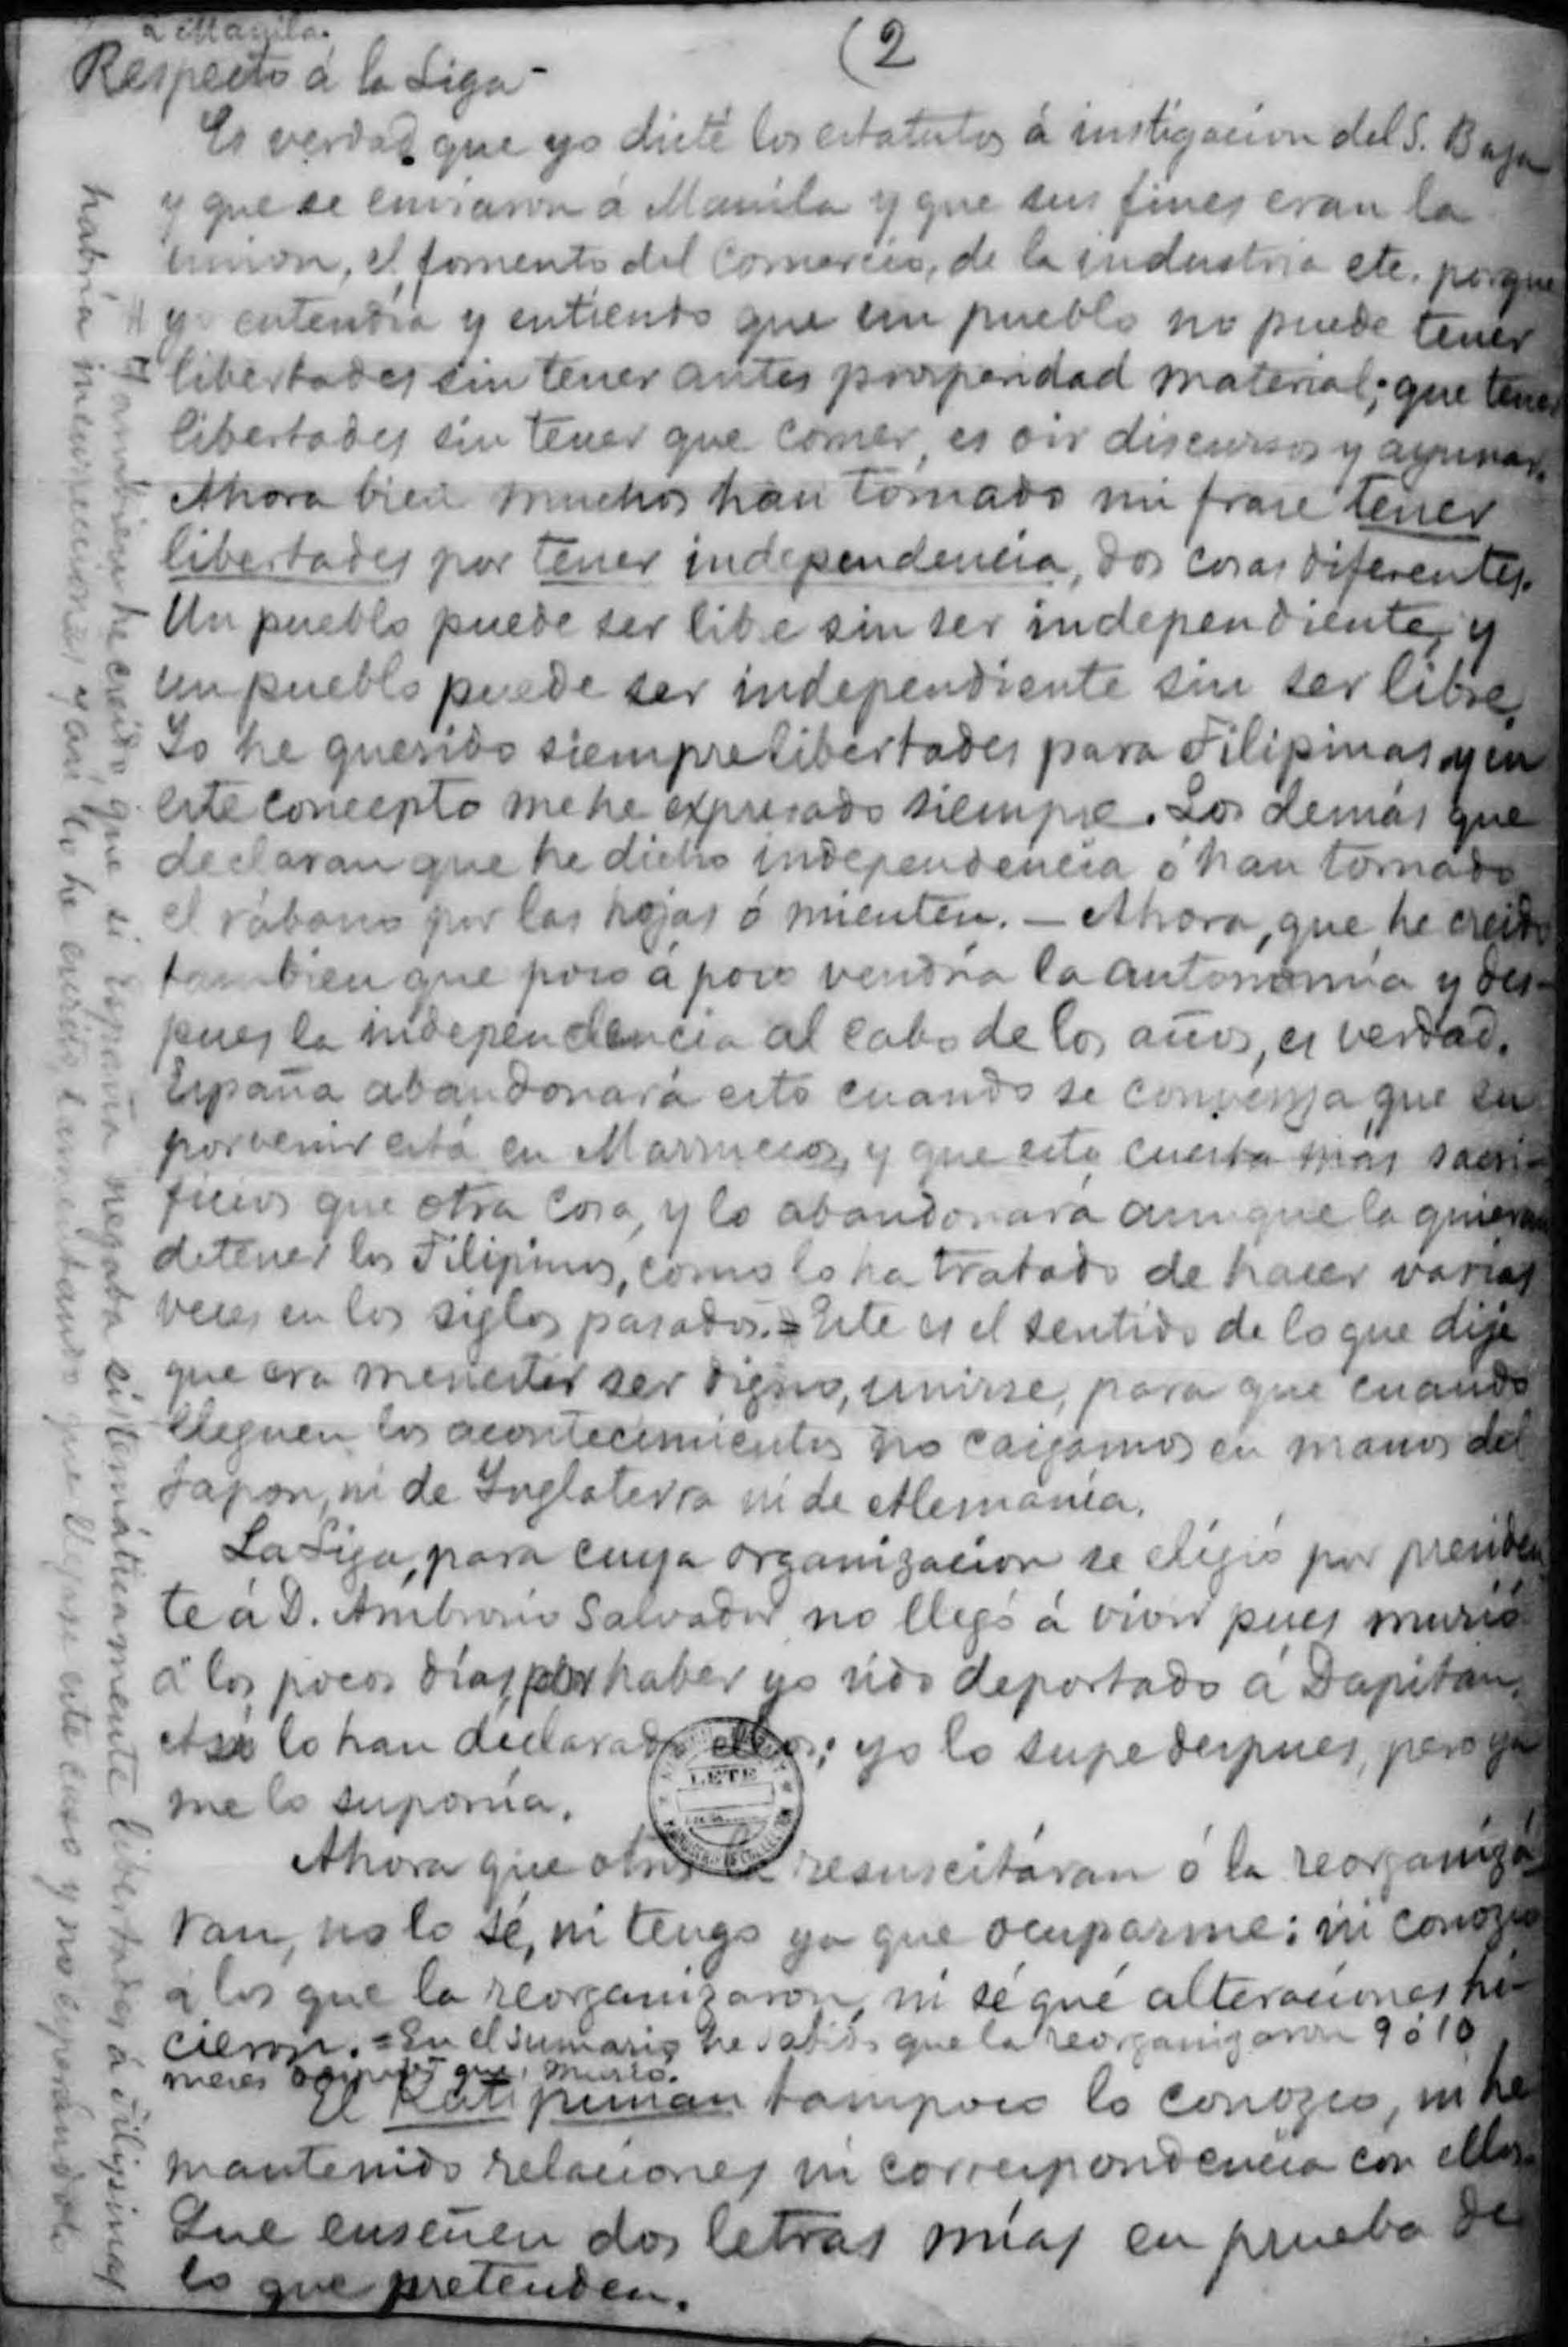 á Manila.
(2
Respecto á la Liga -
Es verdad que yo dicté los estatutos á instigacion del S. Basa
y que se enviaron á Manila y que sus fines eran la
union, el fomento del comercio, de la industria etc. porque
yo entendía y entiendo que un pueblo no puede tener
libertades sin tener antes prosperidad material; que tener
libertades sin tener que comer, es oir discursos y ayunar.
Ahora bien muchos han tomado mi frase tener
libertades por tener independencia, dos cosas diferentes.
Un pueblo puede ser libre sin ser independiente, y
un pueblo puede ser independiente sin ser libre.
Yo he querido siempre libertades para Filipinas y en
este concepto me he expresado siempre. Los demás que
declaran que he dicho independencia ó han tomado
el rábano por las hojas ó mienten. — Ahora, que he creido
tambien que poco á poco vendría la autonomía y des-
pues la independencia al cabo de los años, es verdad.
España abandonará esto cuando se convenza que su
porvenir está en Marruecos, y que esto cuesta más sacri-
ficios que otra cosa, y lo abandonará aunque la quieran
detener los Filipinos, como lo ha tratado de hacer varias
veces en los siglos pasados. = Este es el sentido de lo que dije
que era menester ser digno, unirse, para que cuando
lleguen los acontecimientos no caigamos en manos del
Japon, ni de Inglaterra ni de Alemania.
La Liga, para cuya organizacion se eligió por presiden
te á D. Ambrosio Salvador no llegó á vivir pues murió
á los pocos días por haber yo sido deportado á Dapitan.
Así lo han declarado ellos; yo lo supe despues, pero ya
me lo suponía.
LETE
Ahora que otros la resucitáran ó la reorganizá
ran, no lo sé, ni tengo ya que ocuparme: ni conozco
á los que la reorganizaron, ni sé qué alteraciones hi-
cieron. = En el sumario he sabido que la reorganizaron 9 ó 10
meses despues que murió.
El Katipunan tampoco lo conozco, ni he
mantenido relaciones ni correspondencia con ellos.
Que enseñen dos letras mías en prueba de
lo que pretenden.
# Tambien he creido que si España negaba sistemáticamente libertades á Filipinas
habría insurrecciones y así lo he escrito, lamentando que llegase este caso y no esperándolo